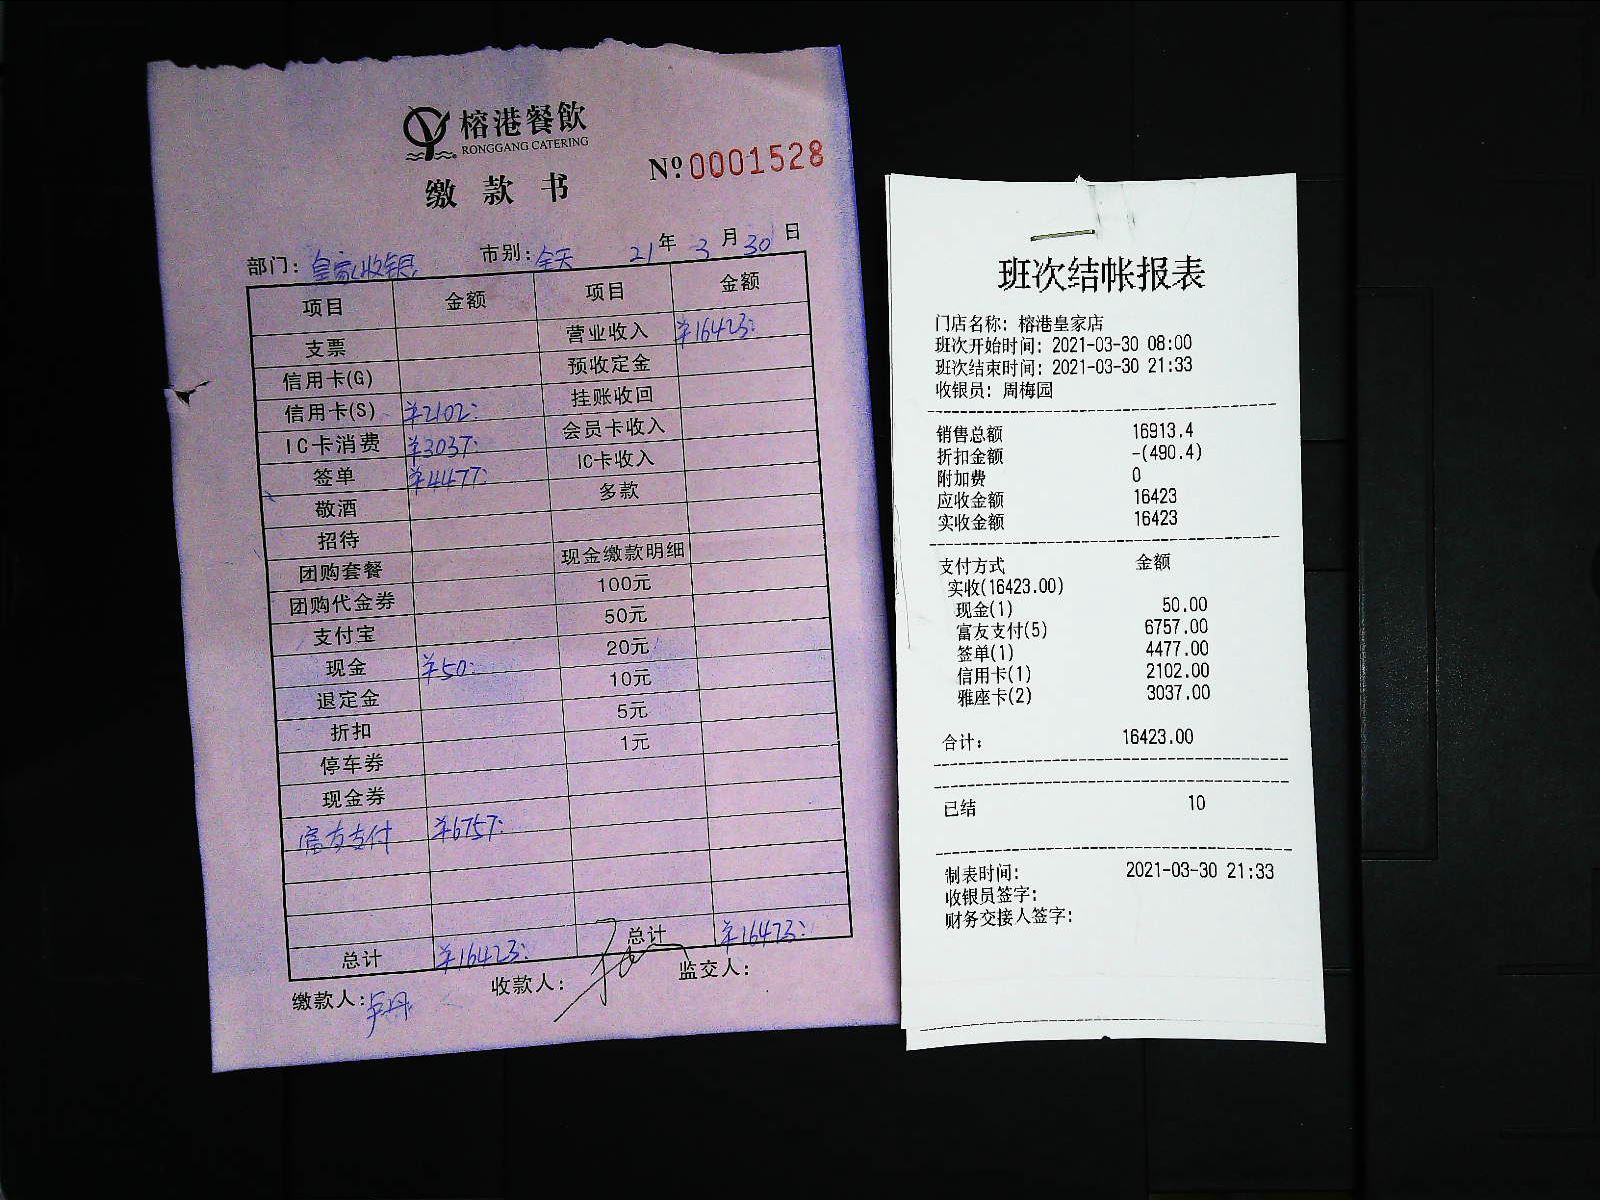 榕港餐飲
RONGGANG CATERING
缴款书
Nº 0001528
部门：皇家收银 市别：全天 21年3月30日
项目 金额 项目 金额
支票 营业收入 ¥16423：
信用卡(G) 预收定金
信用卡(S) ¥2102： 挂账收回
IC卡消费 ¥3037： 会员卡收入
签单 ¥4477： IC卡收入
敬酒 多款
招待
团购套餐 现金缴款明细
团购代金券 100元
支付宝 50元
现金 ¥50： 20元
退定金 10元
折扣 5元
停车券 1元
现金券
富友支付 ¥6757：
总计 ¥16423： 总计 ¥16423：
缴款人：卢丹 收款人： 监交人：
班次结帐报表
门店名称：榕港皇家店
班次开始时间：2021-03-30 08:00
班次结束时间：2021-03-30 21:33
收银员：周梅园
销售总额 16913.4
折扣金额 -(490.4)
附加费 0
应收金额 16423
实收金额 16423
支付方式 金额
实收(16423.00)
现金(1) 50.00
富友支付(5) 6757.00
签单(1) 4477.00
信用卡(1) 2102.00
雅座卡(2) 3037.00
合计： 16423.00
已结 10
制表时间： 2021-03-30 21:33
收银员签字：
财务交接人签字：